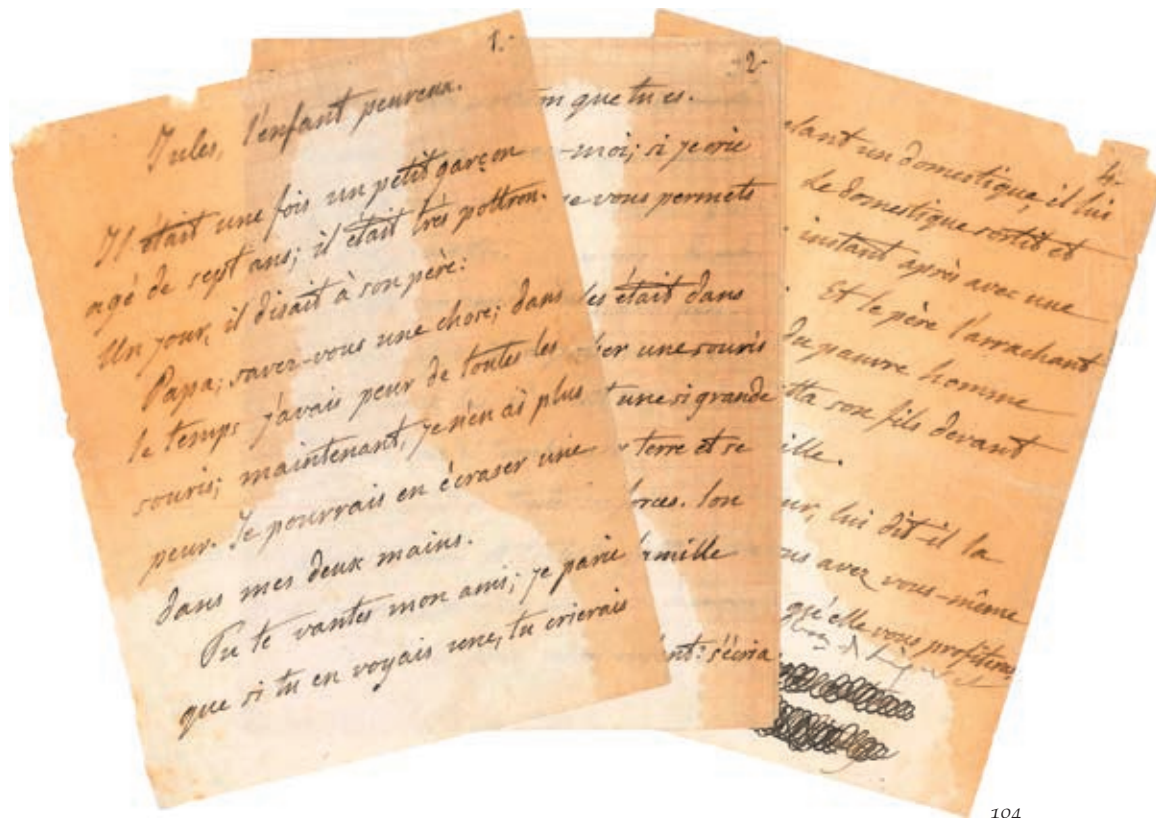 1.-
Jules, l'enfant peureux.
Il était une fois un petit garçon
agé de sept ans; il était très poltron.
Un jour, il disait à son père:
Papa; savez-vous une chose; dans
le temps j'avais peur de toutes les
souris; maintenant, je n'en ai plus
peur. Je pourrais en écraser une
dans mes deux mains.
Tu te vantes mon ami; je parie
que si tu en voyais une, tu crierais
2.-
que tu es.
-moi; si je crie
je vous permets
les était dans
une souris
une si grande
terre et se
forces. Son
famille
s'écria
4.-
un domestique, il lui
Le domestique sortit et
instant après avec une
Et le père l'arrachant
du pauvre homme
son fils devant
lui dit-il la
vous avez vous-même
qu'elle vous profitera
104